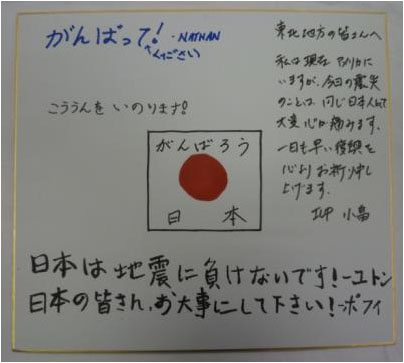 がんばって!
ください
- NATHAN
こううんをいのります!
東北地方の皆さんへ
私は現在アメリカに
いますが、今回の震災
のことは、同じ日本人として
大変心が痛みます。
一日も早い復興を
心よりお祈り申し
上げます。
小畠
がんばろう
日本
日本は地震に負けないです!ーユトン
日本の皆さん、お大事にして下さい!-ボフィ